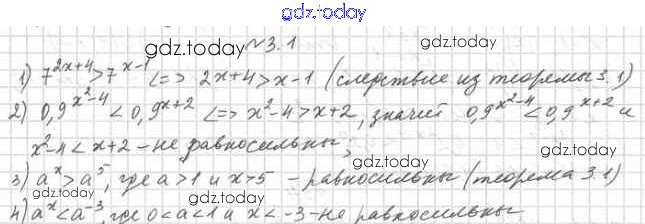 gdz.today
gdz.today №3.1 gdz.today
1) 7^{2x+4}>7^{x-1} <=> 2x+4>x-1 (следствие из теоремы 3.1)
2) 0,9^{x²-4}<0,9^{x+2} <=> x²-4>x+2, значит 0,9^{x²-4}<0,9^{x+2} и
gdz.today gdz.today
x²-4<x+2 - не равносильны,
gdz.today
3) a^x>a^5, где a>1 и x>5 - равносильны (теорема 3.1)
gdz.today gdz.today
4) a^x<a^{-3}, где 0<a<1 и x<-3 - не равносильны.